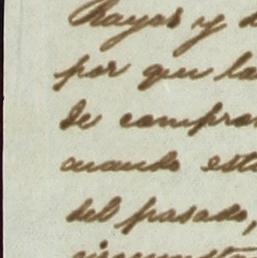 Rayos y d
por que la
de compro
cuando est
del pasado,
circunsta